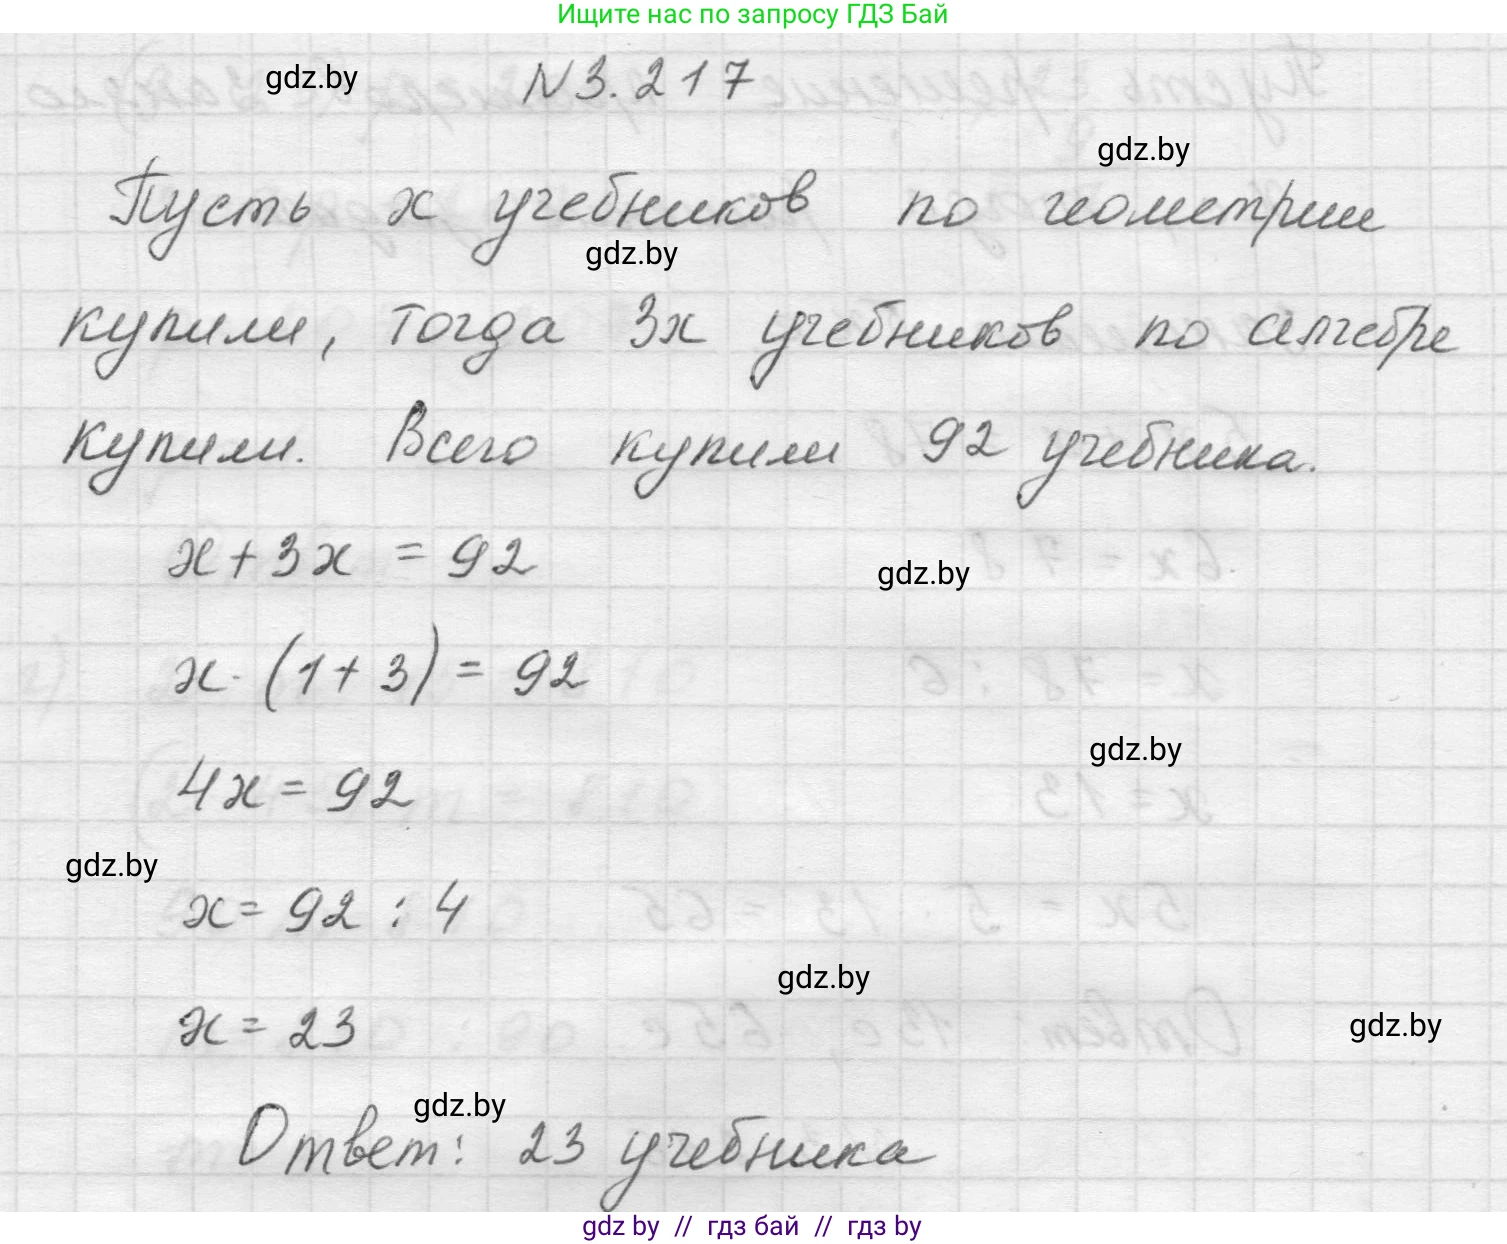 Ищите нас по запросу ГДЗ Бай
gdz.by
N3.217
gdz.by
Пусть x учебников по геометрии
gdz.by
купили, тогда 3x учебников по алгебре
купили. Всего купили 92 учебника.
x+3x = 92
gdz.by
x·(1+3) = 92
gdz.by
4x = 92
gdz.by
x = 92 : 4
gdz.by
x = 23
gdz.by
gdz.by
Ответ: 23 учебника
gdz by // гдз бай // гдз by